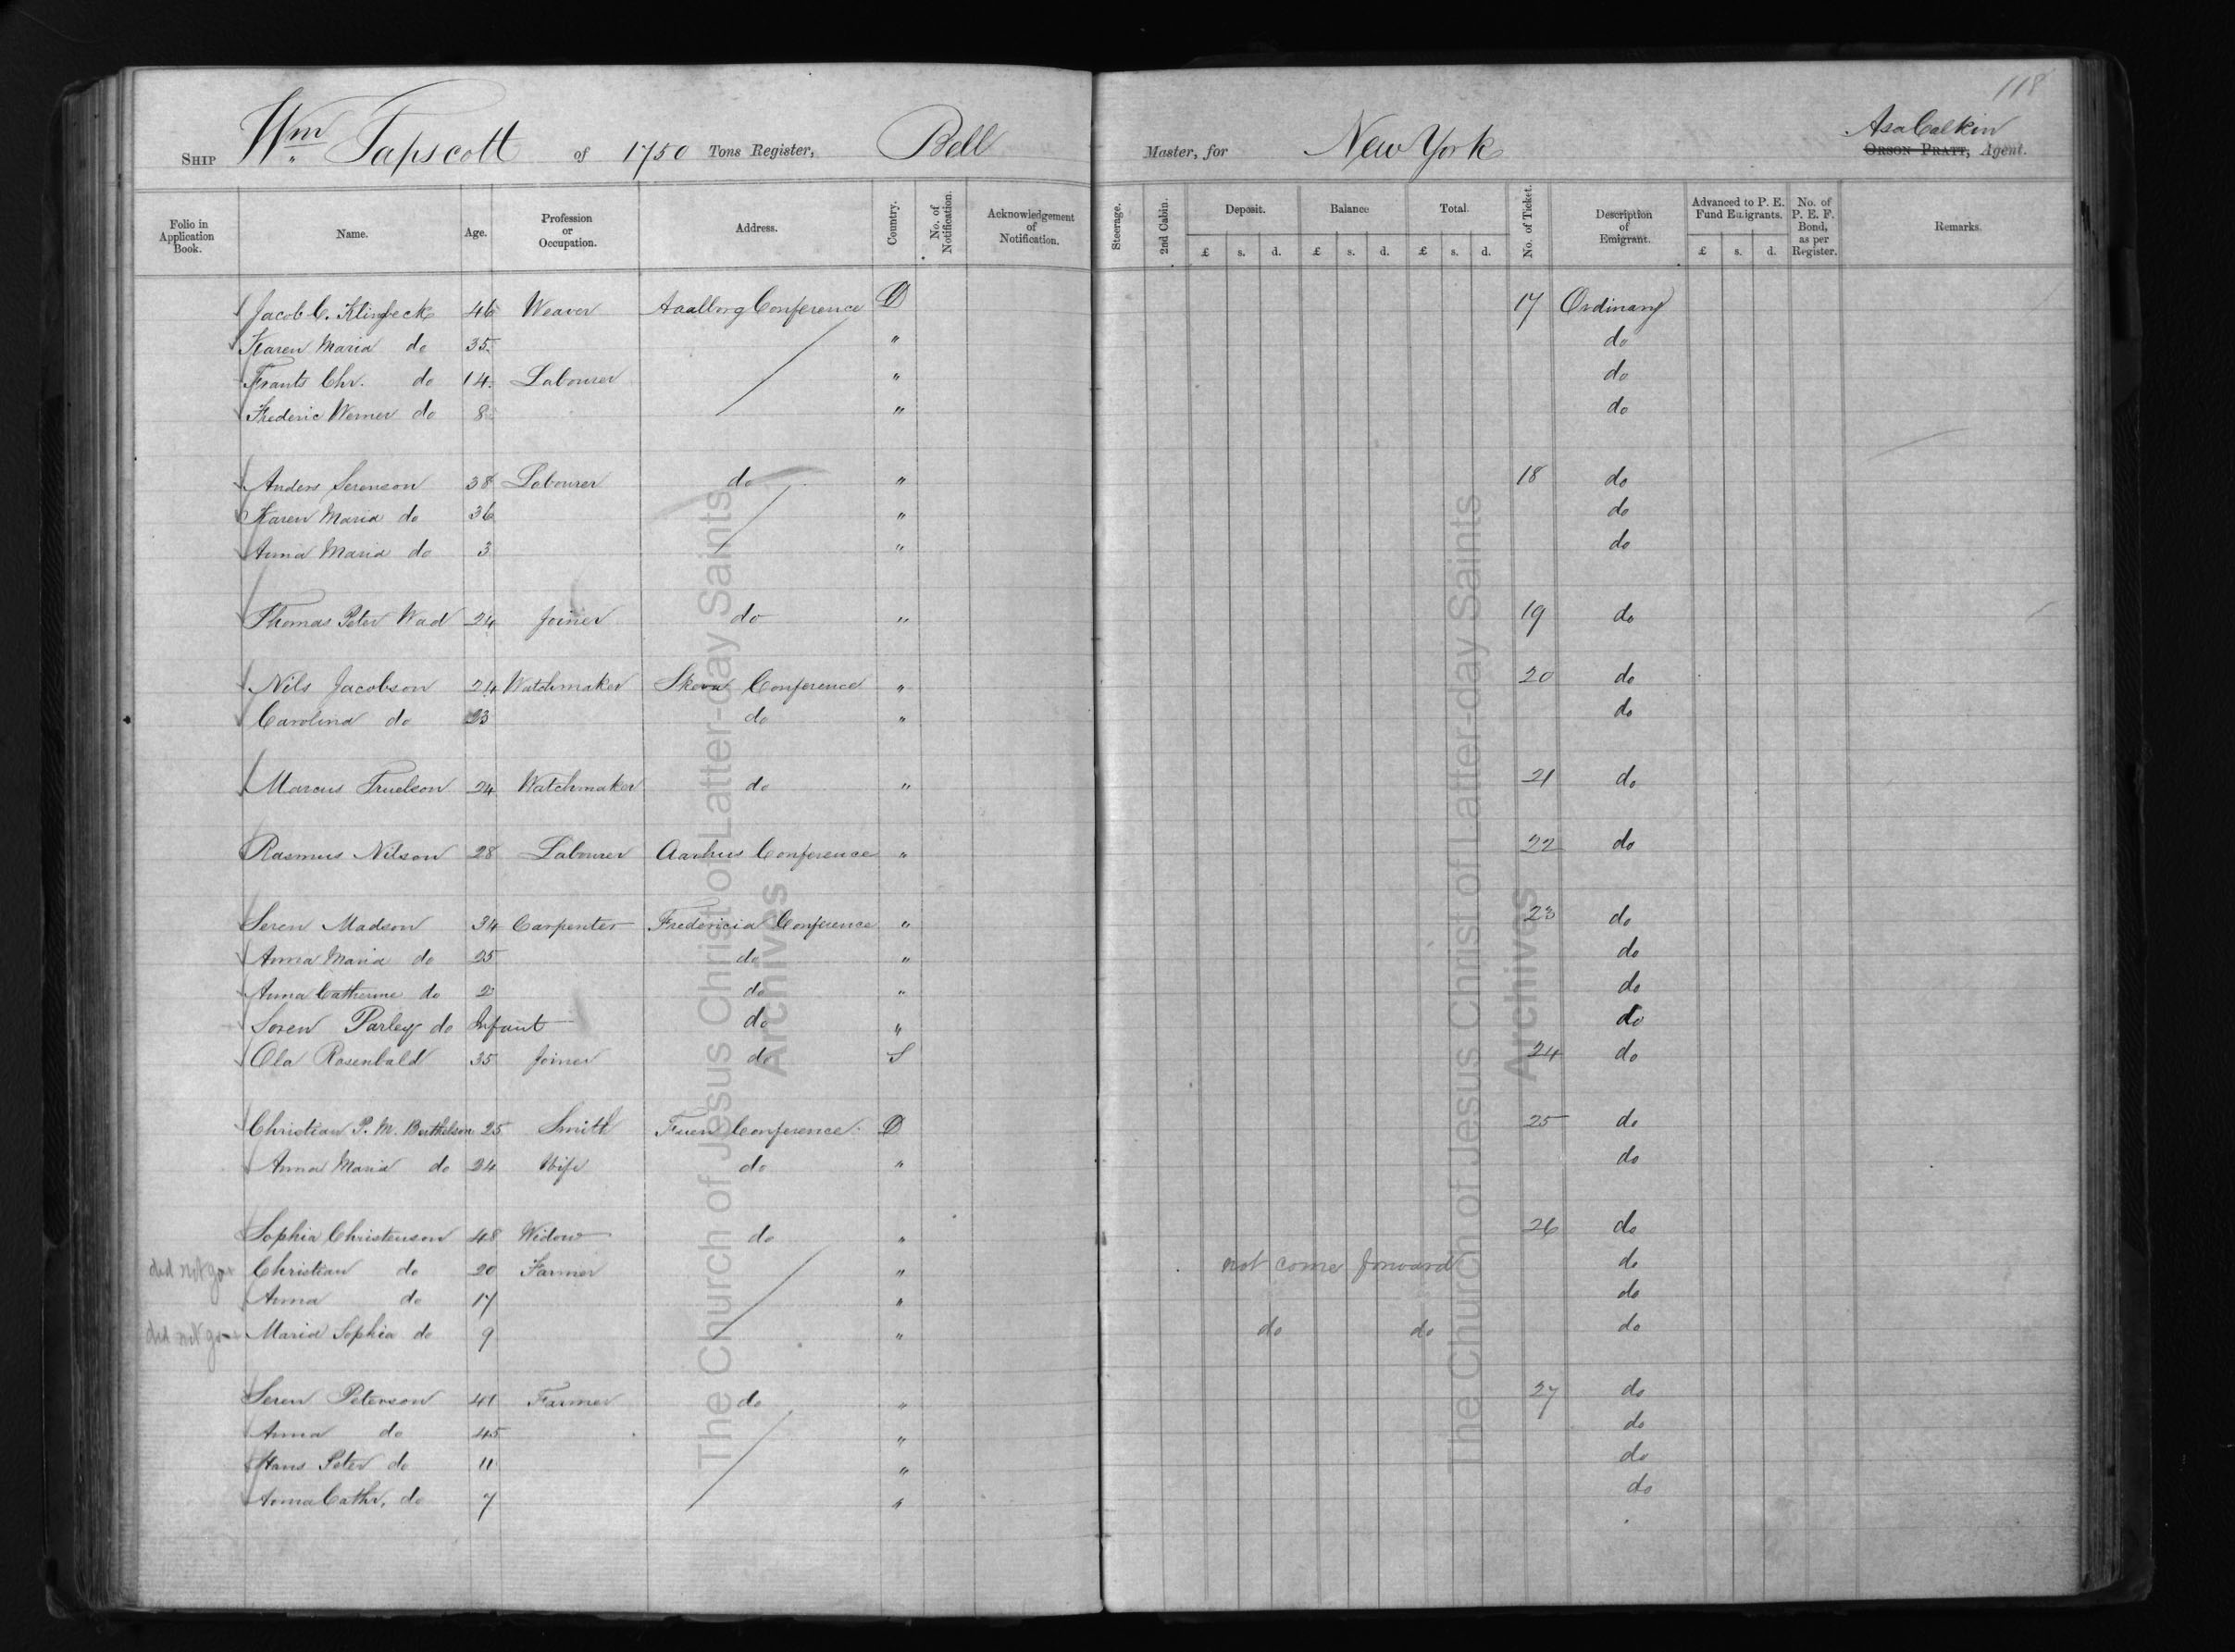 118
SHIP Wm Tapscott of 1750 Tons Register, Bell Master, for New York Asa Calkin
ORSON PRATT, Agent.
Folio in Application Book. Name. Age. Profession or Occupation. Address. Country. No. of Notification. Acknowledgement of Notification. Steerage. 2nd Cabin. Deposit. £ s. d. Balance £ s. d. Total. £ s. d. No. of Ticket. Description of Emigrant. Advanced to P. E. Fund Emigrants. £ s. d. No. of P. E. F. Bond, as per Register. Remarks.
Jacob C. Klinbeck 46 Weaver Aalborg Conference D 17 Ordinary
Karen Maria do 35 " do
Frants Chr. do 14 Labourer " do
Frederic Werner do 8 " do
Anders Serenson 38 Labourer do " 18 do
Karen Maria do 36 " do
Anna Maria do 3 " do
Thomas Peter Wad 24 Joiner do " 19 do
Nils Jacobson 24 Watchmaker Conference " 20 do
Carolina do 23 do " do
Marcus Truelson 24 Watchmaker do " 21 do
Rasmus Nilson 28 Labourer Aarhus Conference " 22 do
Seren Madson 34 Carpenter Fredericia Conference " 23 do
Anna Maria do 25 do " do
Anna Catherine do 2 do " do
Soren Parley do Infant do " do
Ola Rosenbald 35 Joiner do S 24 do
Christian P. M. Berthelson 25 Smith Fuen Conference D 25 do
Anna Maria do 24 Wife do " do
Sophia Christenson 48 Widow do " 26 do
did not go Christian do 20 Farmer " not come forward do
Anna do 17 " do
did not go Maria Sophia do 9 " do do do
Seren Peterson 41 Farmer do " 27 do
Anna do 45 " do
Hans Peter do 11 " do
Anna Cathr, do 7 " do
The Church of Jesus Christ of Latter-day Saints
Archives
The Church of Jesus Christ of Latter-day Saints
Archives